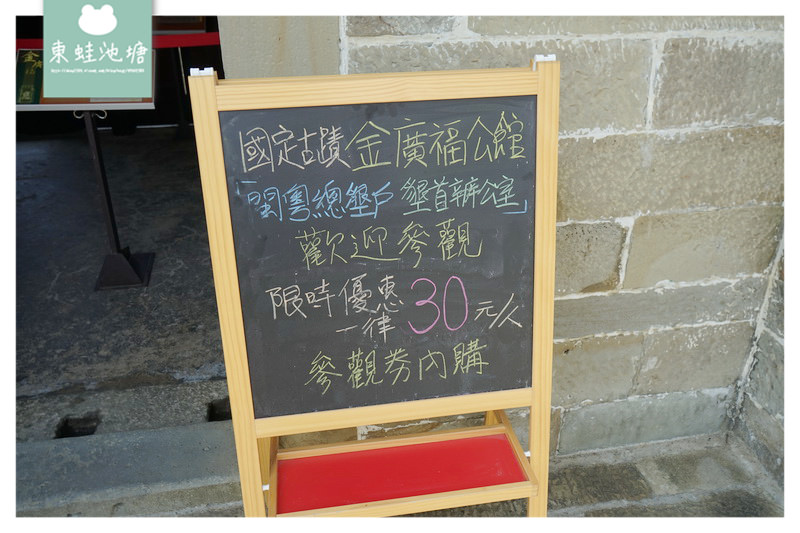 東蛙池塘
國定古蹟金廣福公館
「閩粵總墾戶 墾首辦公室」
歡迎參觀
限時優惠
一律 30元/人
參觀券內購